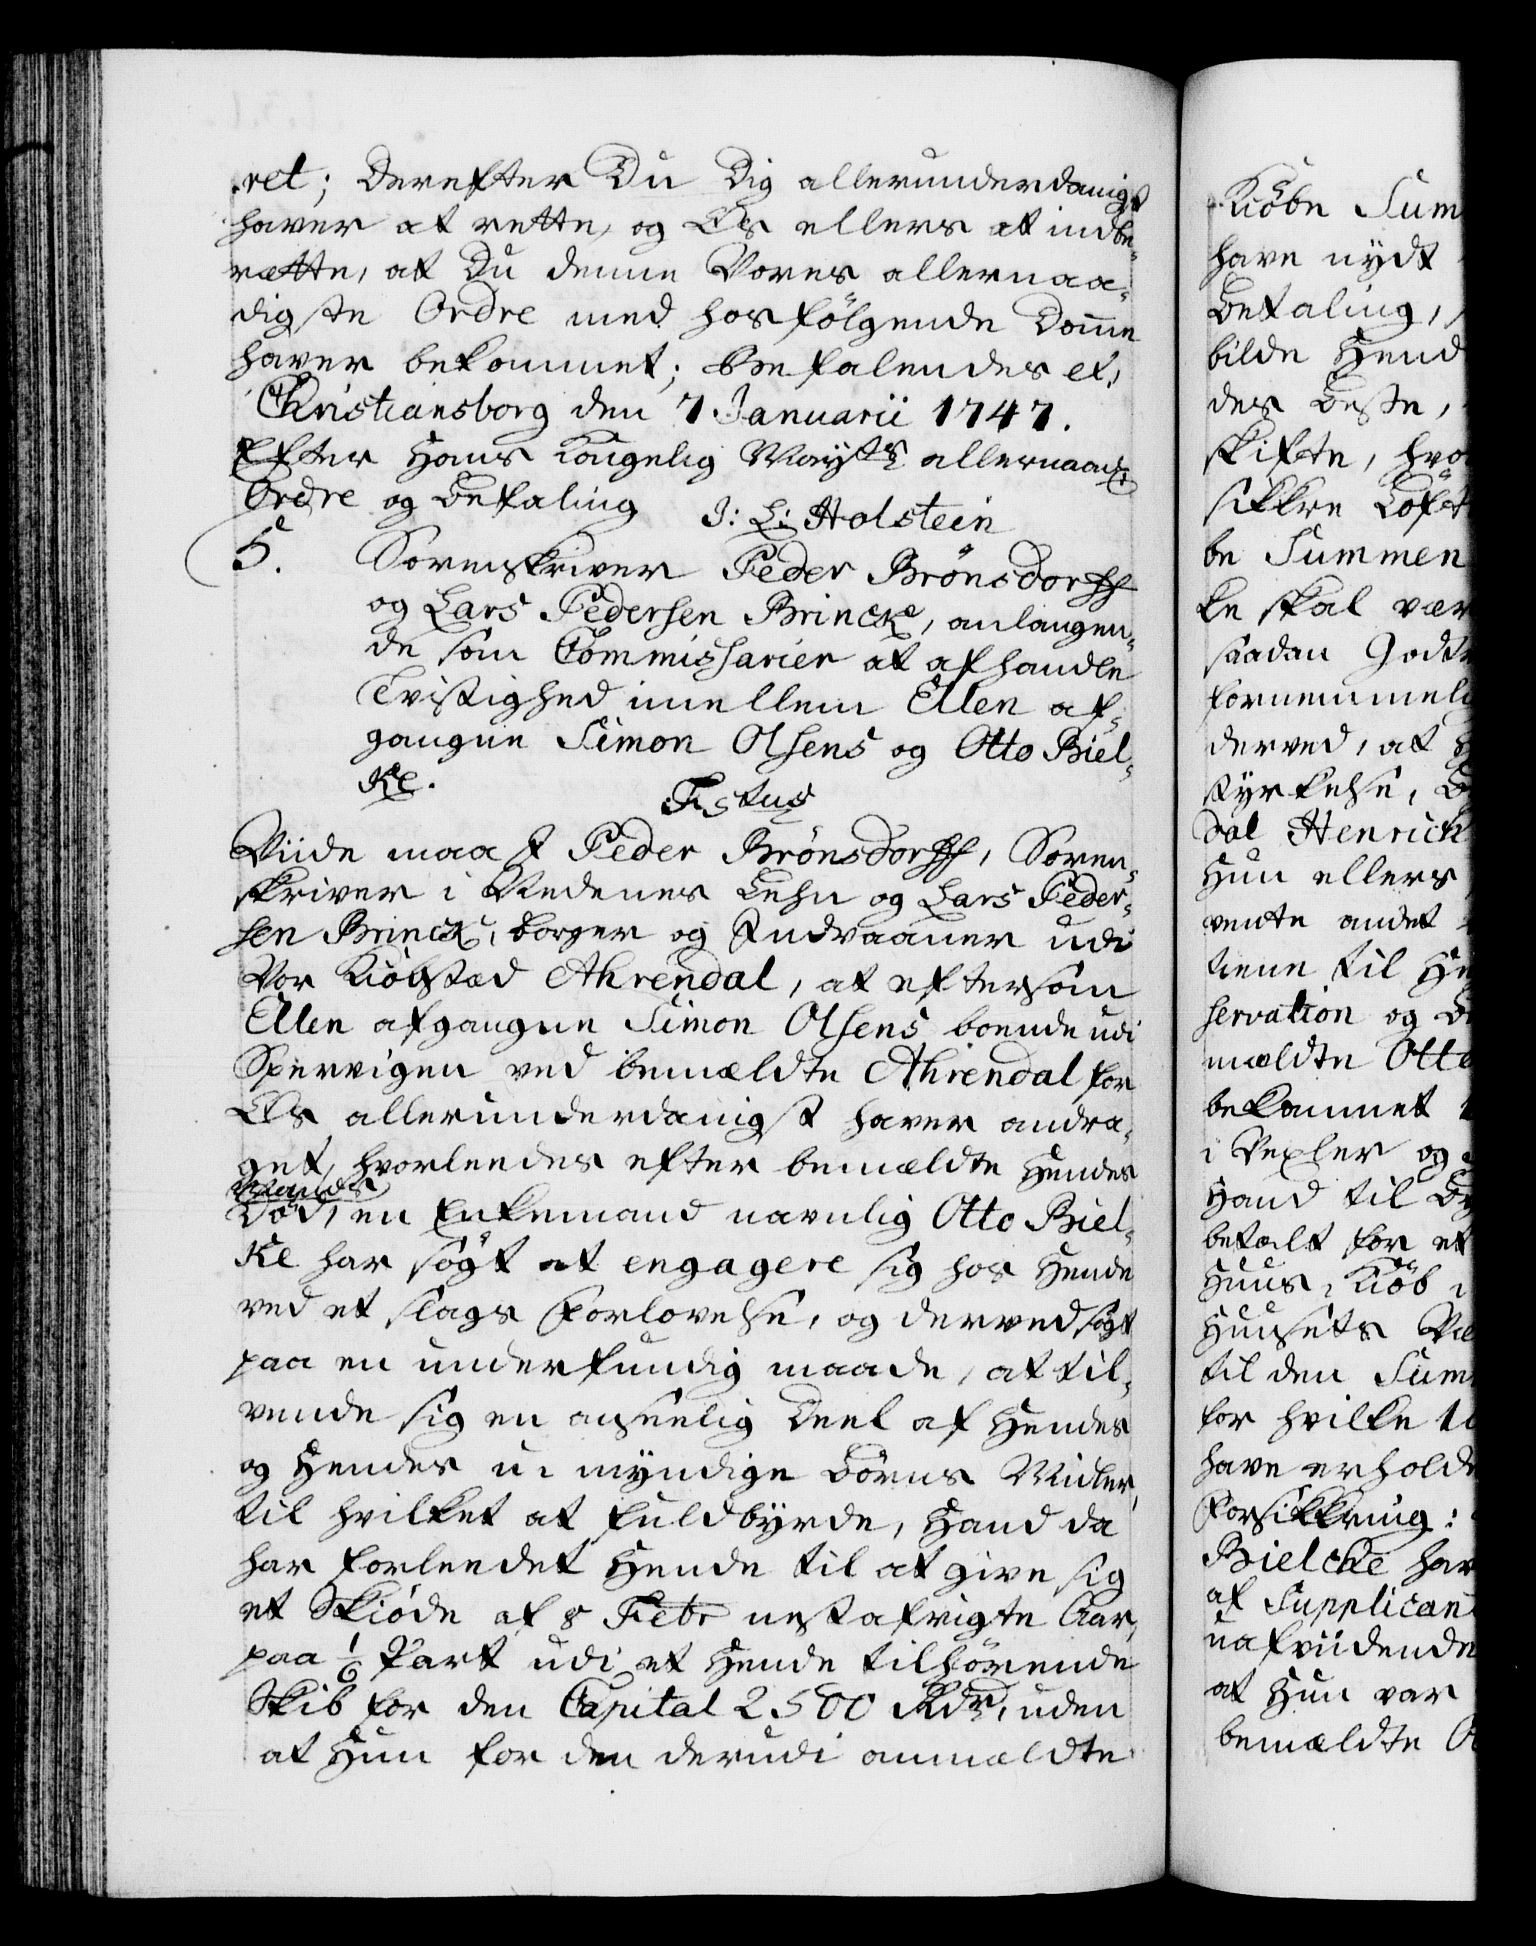 ret; derefter Du dig allerunderdanigst
haver at rette, og Os ellers at indbe-
rætte, at Du denne Vores allernaa-
digste Ordre med hosfölgende Domme
haver bekommet; Befalendes et.
Christiansborg den 7 Januarii 1747.
Efter Hans Kongelig Mayts allernaad:
Ordre og Befaling J: L: Holstein
5. Sorenskriver Peder Brönsdorff
og Lars Pedersen Brincke, anlangen-
de som Commissarier at afhandle
Tvistighed imellem Ellen af-
gangne Simon Olsens og Otto Biel-
Ke.
Viide maa I Peder Brönsdorff, Soren-
skriver i Nedenes Lehn og Lars Peder-
sen Brinck, borger og Indvaaner udi
Vor Kiöbstæd Ahrendal, at eftersom
Ellen afgangne Simon Olsens boende udi
Spervigen ved bemældte Ahrendal for
Os allerunderdanigst haver andra-
get, hvorleedes efter bemældte Hendes
Mands
Död, en Enkemand navnlig Otto Biel-
Ke har sögt at engagere sig hos Hende
ved et slags Forlovelse, og derved sögt
paa en underfundig maade, at til-
vende sig en anseelig Deel af Hendes
og Hendes u-myndige Börns Midler,
til hvilket at fuldbyrde, Hand da
har forleedet Hende til at give sig
et Skiöde af 8 Febr nestafvigte Aar,
paa 1/6 Part udi et Hende tilhörende
Skib for den Capital 2500 Rdr, uden
at Hun for den derudi anmældte
Kiöbe Sum
have nydt
Betaling,
bilde Hend
des beste,
skifte, hvo
sikkre Löft
be Summen
ke skal vær
saadan Godt
fornemmeli
derved, at H
styrkelse, 
dal Henrich
Hun ellers
vente andet
tiene til He
servation og
mældte Otto
bekommet
i Vexler og
Hand til
betalt for et
Huus, Kiöb i
Huusets
til den Sum
for hvilke
have erholde
Forsikkring:
Bielcke har
af Supplican
uafviidende
at Hun var
bemældte